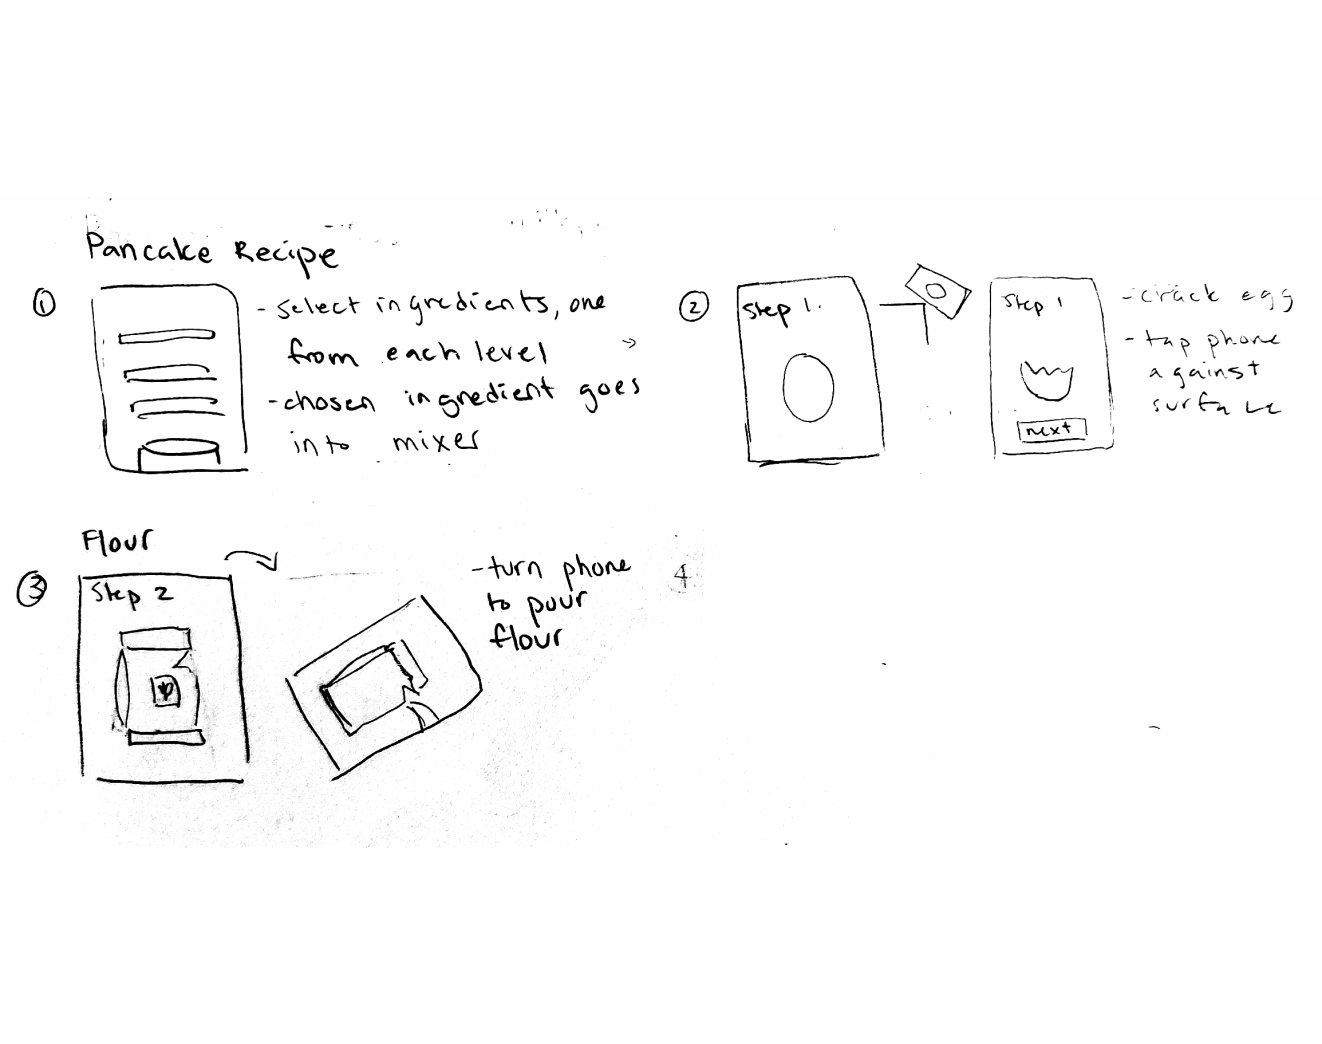 Pancake Recipe
1
- Select ingredients, one
from each level
- chosen ingredient goes
into mixer
2
Step 1.
Step 1
next
- crack egg
- tap phone
against
surface
Flour
3
Step 2
- turn phone
to pour
flour
4